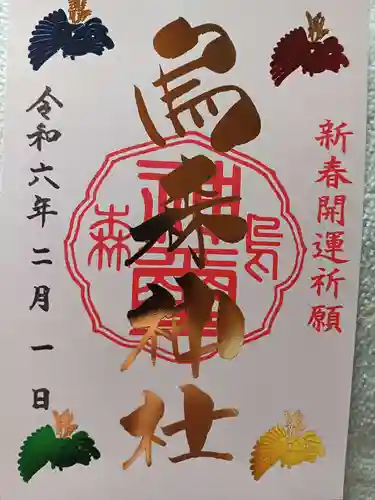 新春開運祈願
烏森神社
令和六年二月一日